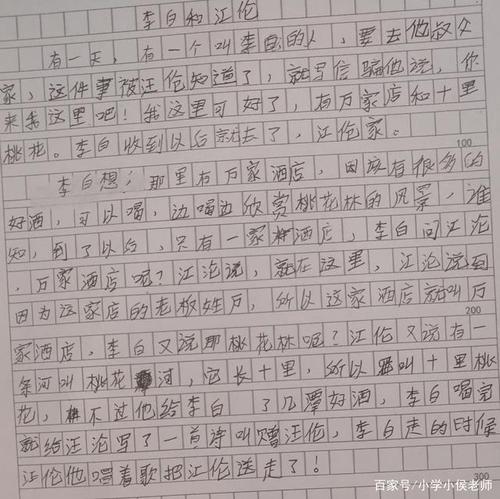 李白和汪伦
有一天，有一个叫李白的人，要去他叔父
家，这件事被汪伦知道了，就写信骗他说，你
来我这里吧！我这里可好了，有万家店和十里
桃花。李白收到以后就去了，汪伦家。
100
李白想，那里有万家酒店，因该有很多的
好酒，可以喝，边喝边欣赏桃花林的风景，谁
知，到了以后，只有一家酒店，李白问汪沦
，万家酒店呢？江沦说，就在这里，江沦说到
因为这家店的老板姓万，所以这家酒店就叫万
200
家酒店，李白又说那桃花林呢？江伦又说有一
条河叫桃花河，它长十里，所以叫十里桃
花，不过他给李白了几潭好酒，李白喝完
就给汪沦写了一首诗叫赠汪伦，李白走的时候
汪伦他唱着歌把江伦送走了！
300
百家号/小学小侯老师